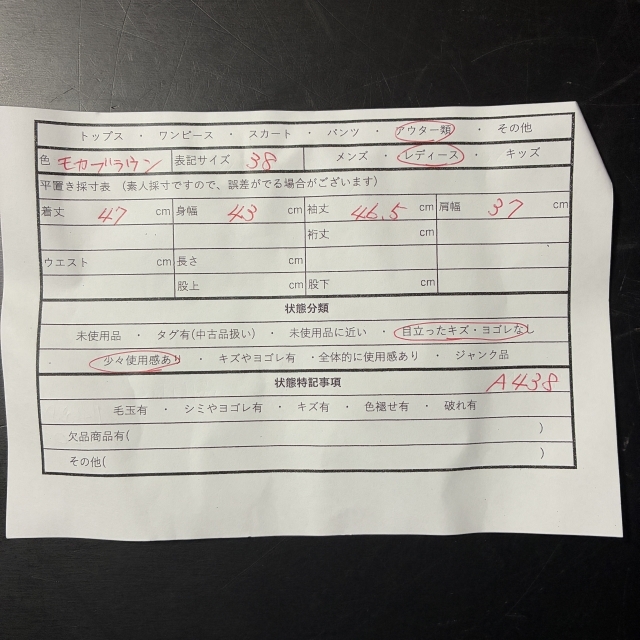 トップス ・ ワンピース ・ スカート ・ パンツ ・ アウター類 ・ その他
色 モカブラウン 表記サイズ 38 メンズ ・ レディース ・ キッズ
平置き採寸表 (素人採寸ですので、誤差がでる場合がございます)
着丈 47 cm 身幅 43 cm 袖丈 46.5 cm 肩幅 37 cm
裄丈 cm
ウエスト cm 長さ cm
股上 cm 股下 cm
状態分類
未使用品 ・ タグ有(中古品扱い) ・ 未使用品に近い ・ 目立ったキズ・ヨゴレなし
少々使用感あり ・ キズやヨゴレ有 ・全体的に使用感あり ・ ジャンク品
状態特記事項 A438
毛玉有 ・ シミやヨゴレ有 ・ キズ有 ・ 色褪せ有 ・ 破れ有
欠品商品有( )
その他( )